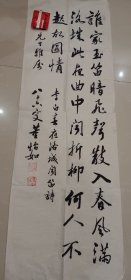 誰家玉笛暗飛聲散入春風滿
洛城此夜曲中聞折柳何人不
起故園情 李白春夜洛城聞笛詩
先生雅屬
八十六叟董